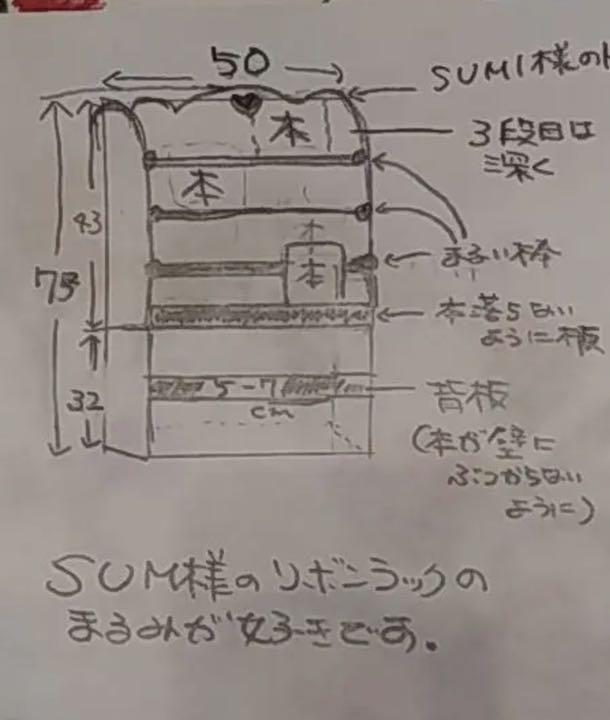 50
SUMI様の
本
3段目は
深く
本
43
75
本
まるい棒
本落ちない
ように板
32
5-7
cm
背板
(本が壁に
ぶつからない
ように)
SUMI様のリボンラックの
まるみが好きです。